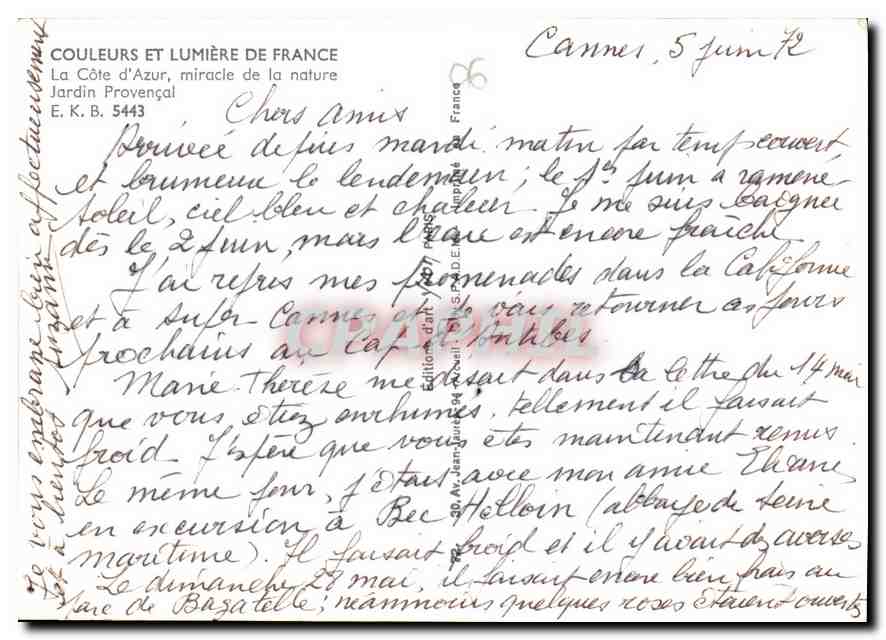 COULEURS ET LUMIÈRE DE FRANCE
La Côte d'Azur, miracle de la nature
Jardin Provençal
E. K. B. 5443
Cannes, 5 juin 72
86
Chers amis
Arrivée depuis mardi matin par temps couvert
et brumeux le lendemain ; le 1er juin a ramené
soleil, ciel bleu et chaleur. Je me suis baignée
dès le 2 juin, mais l'eau est encore fraîche
J'ai repris mes promenades dans la Californie
et à super Cannes et je vais retourner ces jours
prochains au Cap d'Antibes.
Marie Thérèse me disait dans la lettre du 14 mai
que vous étiez enrhumés, tellement il faisait
froid. J'espère que vous êtes maintenant remis.
Le même jour, j'étais avec mon amie Eliane
en excursion à Bec Helloin (abbaye de Seine
maritime). Il faisait froid et il y avait des averses
Le dimanche 28 mai, il faisait encore bien frais au
parc de Bagatelle ; néanmoins quelques roses étaient ouvertes
Je vous embrasse bien affectueusement
et à bientôt Suzanne
Éditions d'art YVON PARIS
30, Av. Jean-Jaurès, 94 Arcueil S.P.A.D.E.M. Imprimé en France
CPAPHIL